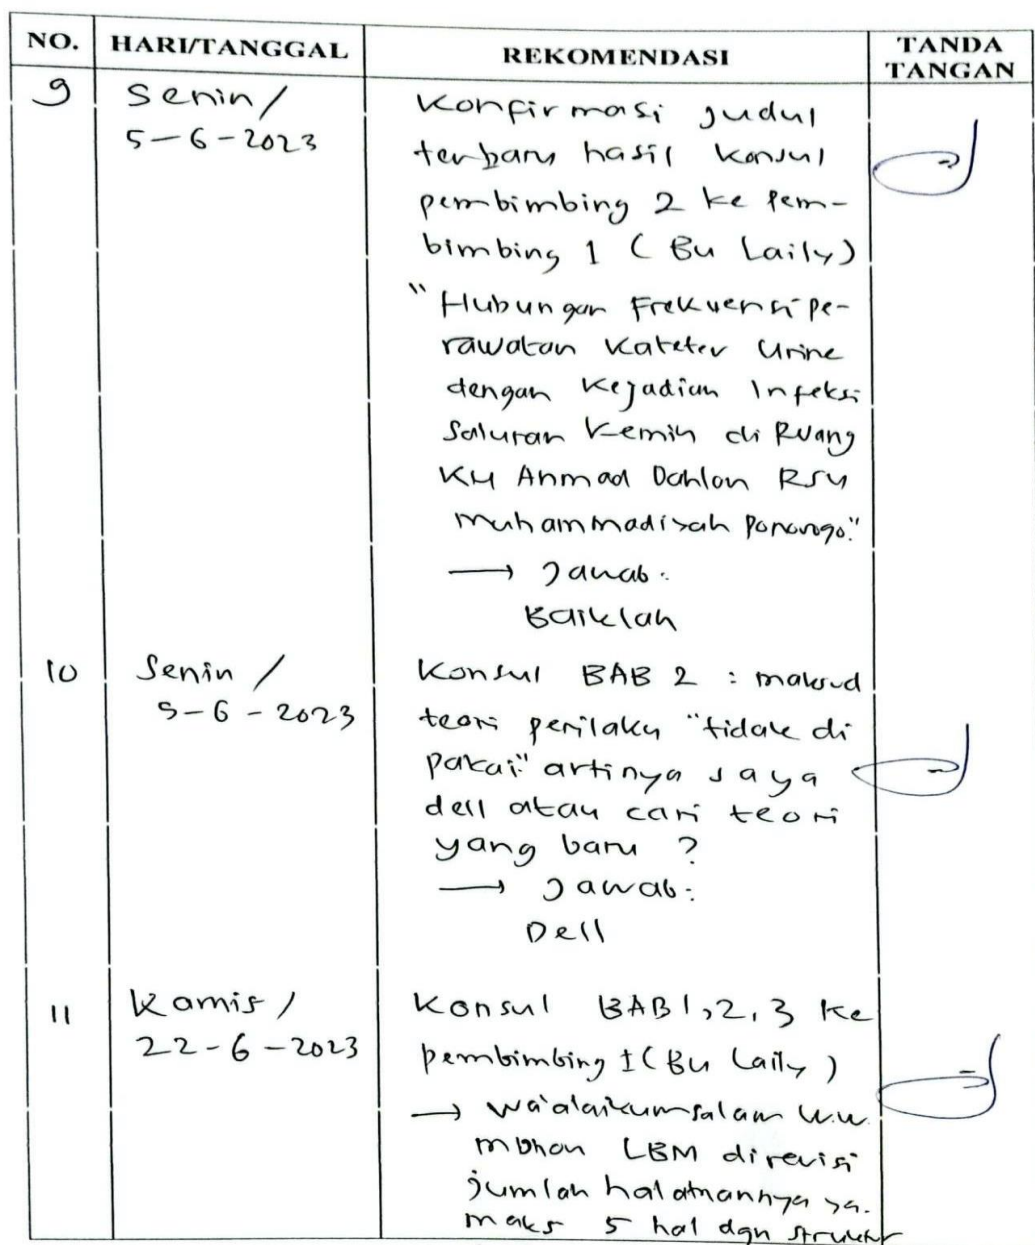 NO. HARI/TANGGAL REKOMENDASI TANDA TANGAN
9 Senin / Konfirmasi judul
5-6-2023 terbaru hasil konsul
pembimbing 2 ke pem-
bimbing 1 (Bu Laily)
"Hubungan Frekuensi pe-
rawatan Kateter Urine
dengan Kejadian Infeksi
Saluran Kemih di Ruang
KH Ahmad Dahlan RSU
Muhammadiyah Ponorogo."
→ Jawab :
Baiklah
10 Senin / Konsul BAB 2 : maksud
5-6-2023 teori perilaku "tidak di
pakai" artinya saya
dell atau cari teori
yang baru ?
→ Jawab :
Dell
11 Kamis / Konsul BAB 1,2,3 ke
22-6-2023 pembimbing I (Bu Laily)
→ Wa'alaikumsalam w.w.
mohon LBM direvisi
jumlah halamannya ya.
maks 5 hal dgn struktur